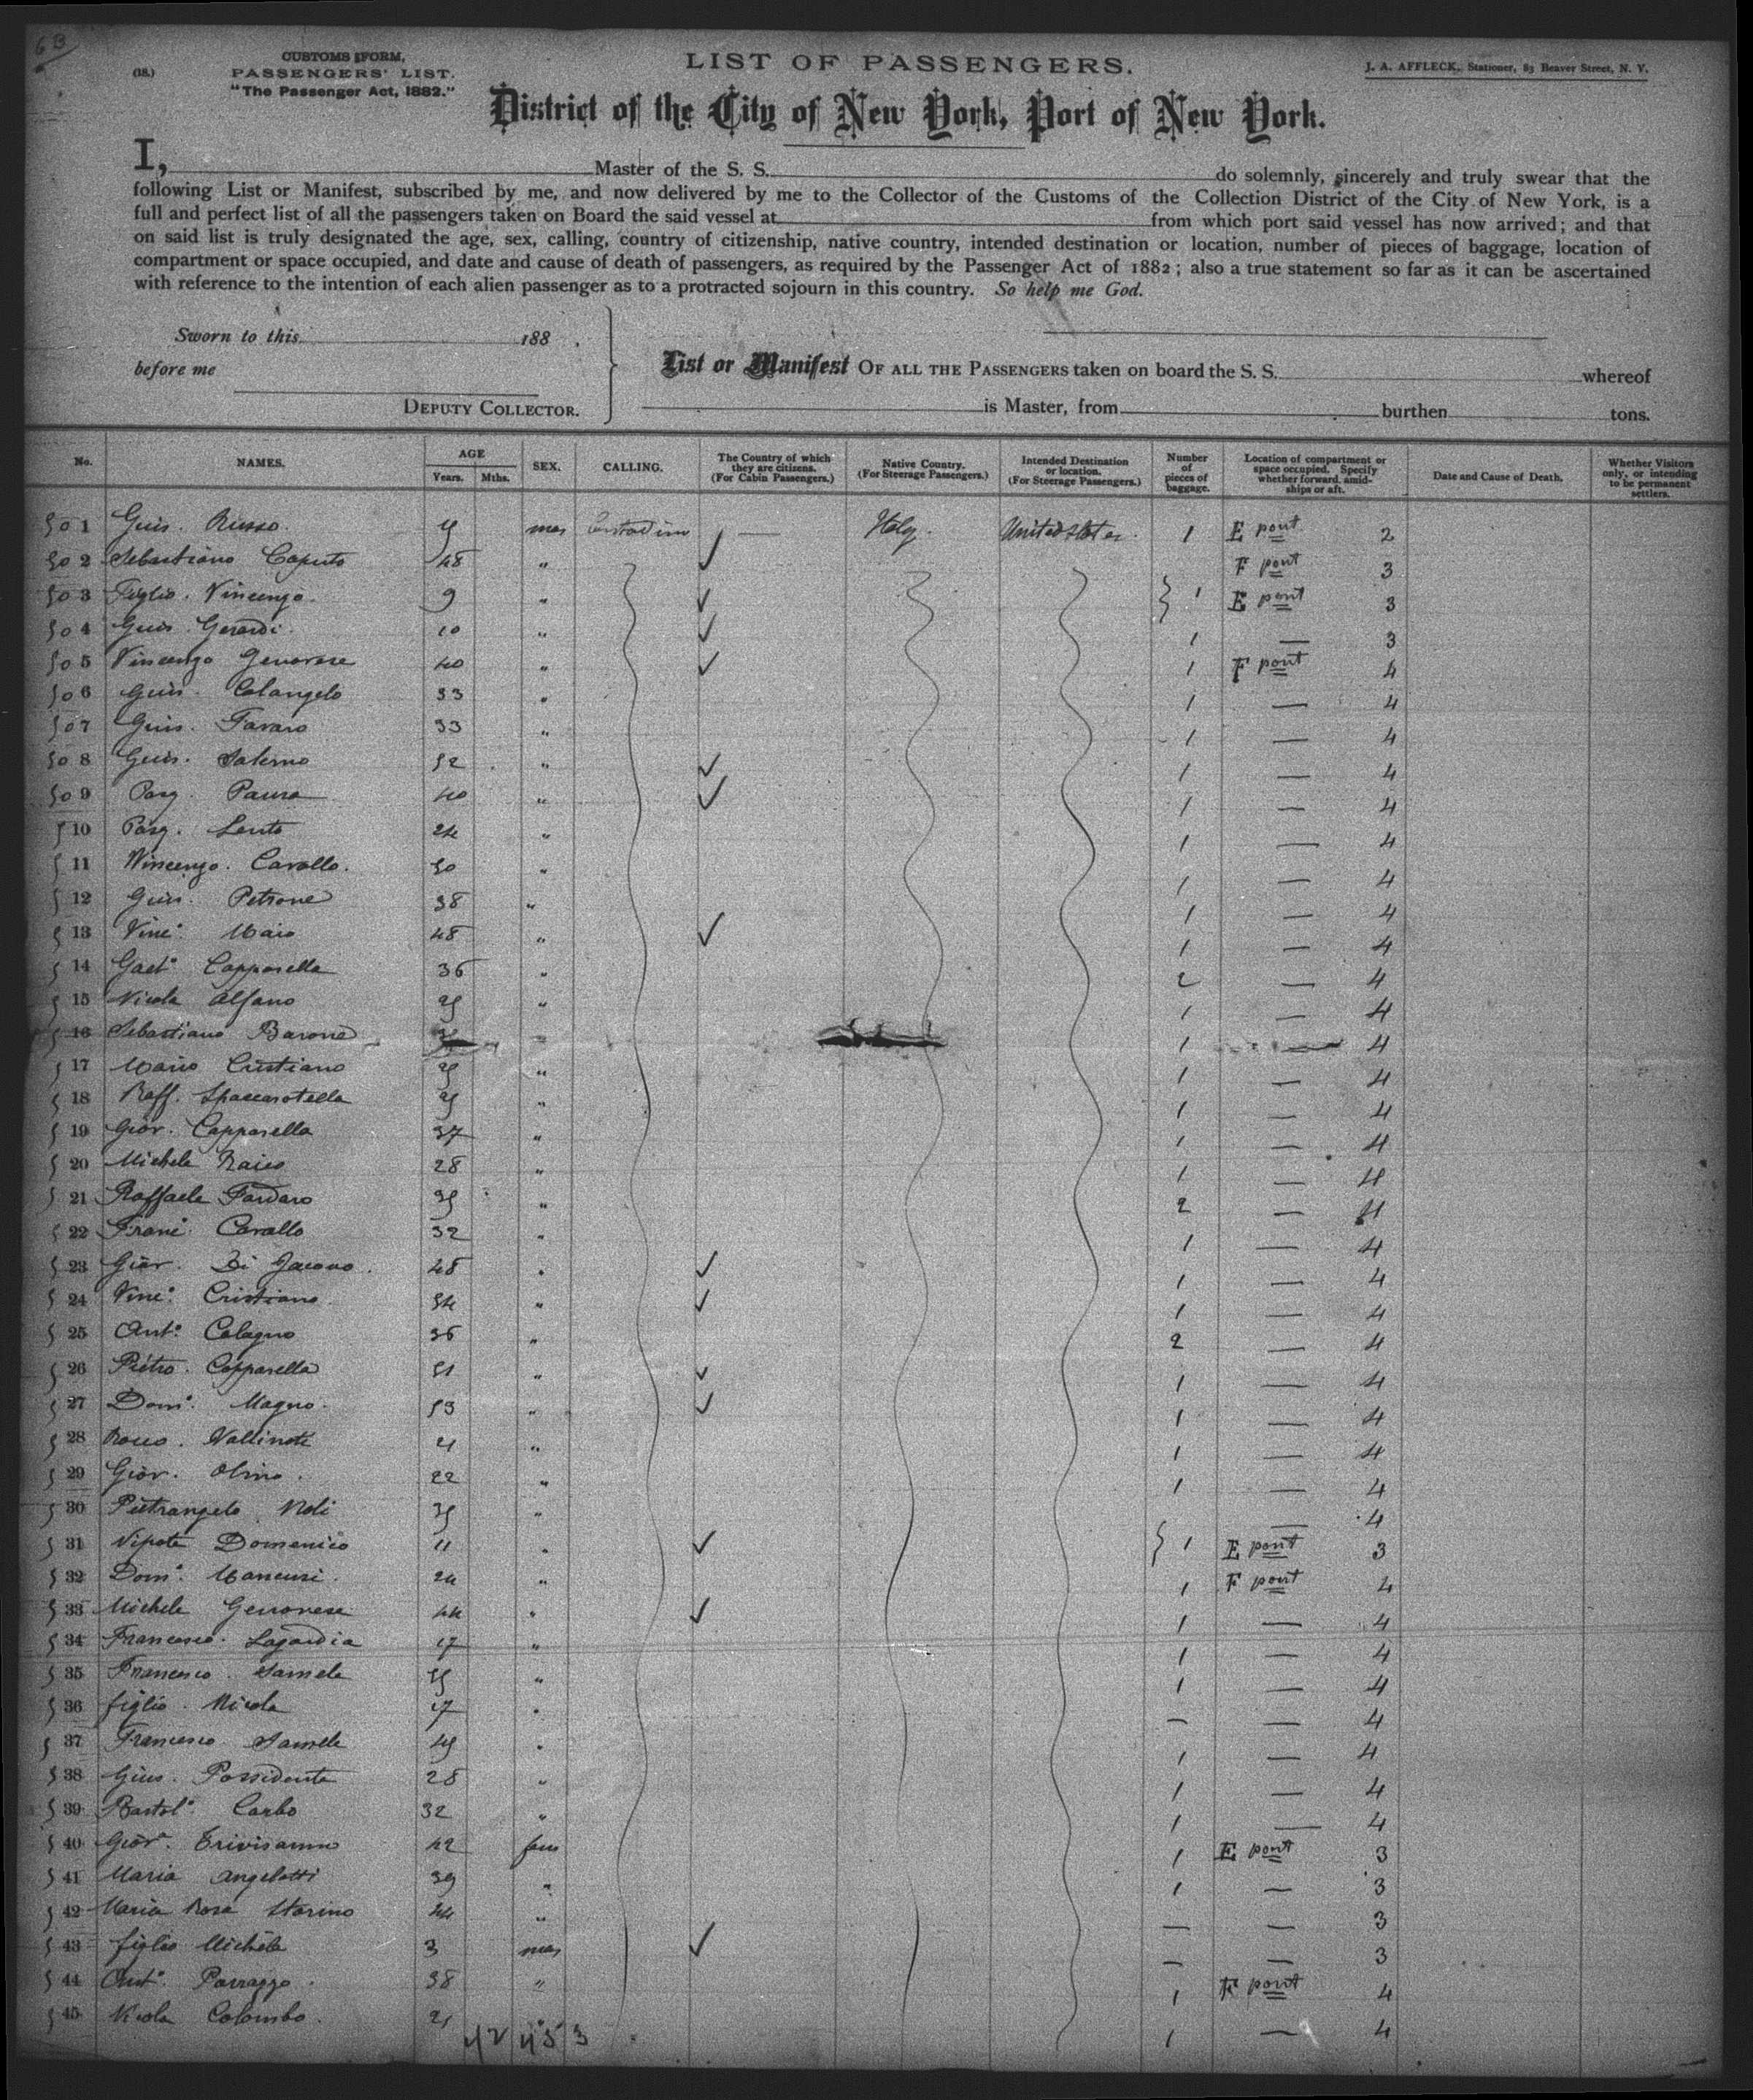 6 B
CUSTOMS FORM,
(18.)
PASSENGERS' LIST.
"The Passenger Act, 1882."
LIST OF PASSENGERS.
J. A. AFFLECK, Stationer, 83 Beaver Street, N. Y.
District of the City of New York, Port of New York.
I, Master of the S. S. do solemnly, sincerely and truly swear that the
following List or Manifest, subscribed by me, and now delivered by me to the Collector of the Customs of the Collection District of the City of New York, is a
full and perfect list of all the passengers taken on Board the said vessel at from which port said vessel has now arrived; and that
on said list is truly designated the age, sex, calling, country of citizenship, native country, intended destination or location, number of pieces of baggage, location of
compartment or space occupied, and date and cause of death of passengers, as required by the Passenger Act of 1882; also a true statement so far as it can be ascertained
with reference to the intention of each alien passenger as to a protracted sojourn in this country. So help me God.
Sworn to this 188 .
before me
DEPUTY COLLECTOR.
List or Manifest OF ALL THE PASSENGERS taken on board the S. S. whereof
is Master, from burthen tons.
No. NAMES. AGE Years. Mths. SEX. CALLING. The Country of which they are citizens. (For Cabin Passengers.) Native Country. (For Steerage Passengers.) Intended Destination or location. (For Steerage Passengers.) Number of pieces of baggage. Location of compartment or space occupied. Specify whether forward, amidships or aft. Date and Cause of Death. Whether Visitors only, or intending to be permanent settlers.
501 Gius. Russo mas Italy. United States. 1 E pont 2
502 Sebastiano Caputo 48 " F pont 3
503 Figlio. Vincenzo. 9 " 1 E pont 3
504 Gius. Gerardi. 10 " 1 — 3
505 Vincenzo Genovese 40 " 1 F pont 4
506 Gius. Colangelo 33 " 1 — 4
507 Gius. Favaro 33 " 1 — 4
508 Gius. Salerno 52 " 1 — 4
509 Pasq. Paura 40 " 1 — 4
510 Pasq. Lento 24 " 1 — 4
511 Vincenzo. Cavallo. 50 " 1 — 4
512 Gius. Petrone 38 " 1 — 4
513 Vinc°. Maio 48 " 1 — 4
514 Gaet° Capparella 36 " 2 — 4
515 Nicola Alfano 25 " 1 — 4
516 Sebastiano Barone " 1 — 4
517 Mario Cristiano 25 " 1 — 4
518 Raff. Spaccarotella 25 " 1 — 4
519 Giov. Capparella 37 " 1 — 4
520 Michele 28 " 1 — 4
521 Raffaele Fardaro 35 " 2 — 4
522 Franc°. Cavallo 32 " 1 — 4
523 Giov. Di Jacovo. 48 " 1 — 4
524 Vinc°. Cristiano 54 " 1 — 4
525 Ant°. Colagno 36 " 2 — 4
526 Pietro. Capparella 51 " 1 — 4
527 Dom°. Magno. 53 " 1 — 4
528 Rocco. 21 " 1 — 4
529 Giov. Olivo. 22 " 1 — 4
530 Pietrangelo Noli 35 " — 4
531 Nipote Domenico 11 " 1 E pont 3
532 Dom°. Mancusi. 24 " 1 F pont 4
533 Michele Genovese 44 " 1 — 4
534 Francesco. Lagardia 17 " 1 — 4
535 Francesco. Samele 55 " 1 — 4
536 figlio. Nicola 17 " — — 4
537 Francesco Samele 45 " 1 — 4
538 Gius. Possidente 28 " 1 — 4
539 Bartol°. Carbo 32 " 1 — 4
540 Giov°. Trivisanno 42 fem 1 E pont 3
541 Maria Angelotti 39 " 1 — 3
542 Maria Rosa Starino 44 " — — 3
543 figlio Michele 3 mas — — 3
544 Ant°. Parrazzo. 38 " 1 F pont 4
545 Nicola Colombo. 1 — 4
42 45 3